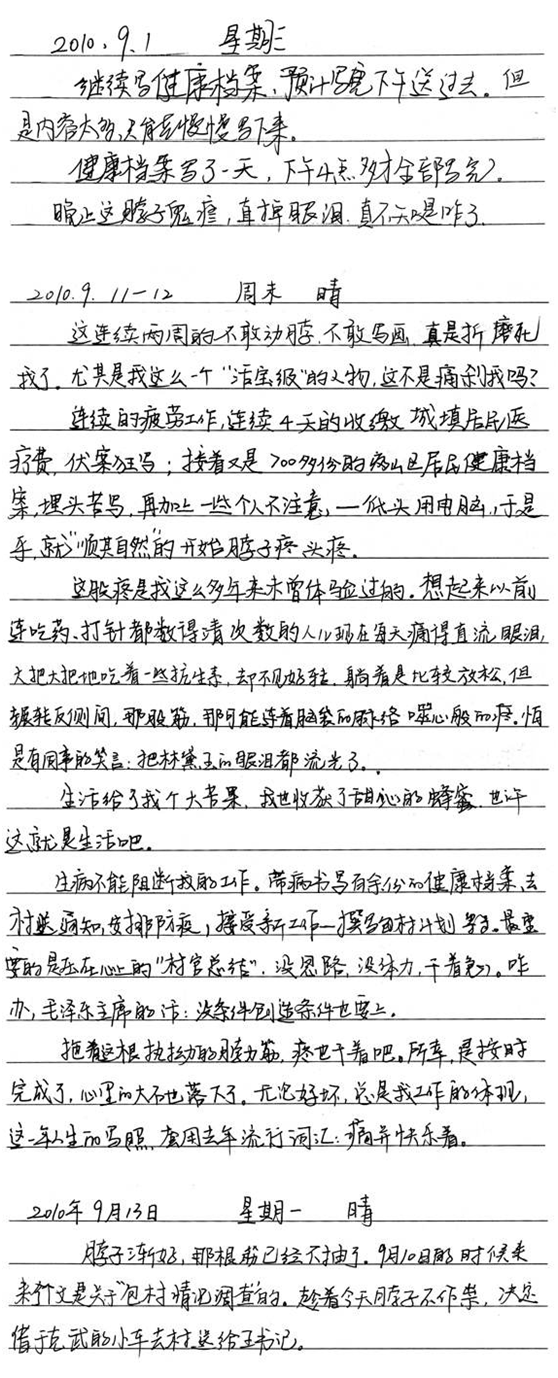 2010.9.1 星期三
继续写健康档案，预计写完下午送过去。但
是内容太多，只能慢慢写下来。
健康档案写了一天，下午4点多才全部写完。
晚上这脖子愈疼，直掉眼泪.真不知是咋了.
2010.9.11—12 周末 晴
这连续两周的不敢动脖，不敢写画，真是折磨死
我了。尤其是我这么一个“活宝级”的人物，这不是痛刹我吗？
连续的疲劳工作，连续4天的收缴城填居民医
疗费，伏案狂写；接着又是700多份的居民健康档
案，埋头苦写，再加上一些个人不注意，一低头用电脑，于是
乎，就“顺其自然”的开始脖子疼头疼。
这股疼是我这么多年来未曾体验过的。想起来以前
连吃药、打针都数得清次数的人儿现在每天痛得直流眼泪，
大把大把地吃着一些抗生素，却不见好转.躺着是比较放松，但
辗转反侧间，那股筋，那可能连着脑袋的脉络噬心般的疼。恰
是有同事的笑言：把林黛玉的眼泪都流光了.
生活给了我个大苦果，我也收获了甜心的蜂蜜.也许
这就是生活吧。
生病不能阻断我的工作。带病书写百余份的健康档案、去
村送通知，安排防疫，接受新工作—撰写包村计划等。最重
要的是压在心上的“村官总结”，没思路，没体力，干着急。咋
办，毛泽东主席的话：没条件创造条件也要上.
拖着这根执拗的脖筋，疼也干着吧。所幸，是按时
完成了，心里的大石也落下了。无论好坏，总是我工作的体现，
这一年人生的写照.套用去年流行词汇：痛并快乐着。
2010年9月13日 星期一 晴
脖子渐好，那根筋已经不抽了.9月10日的时候来
来个文是关于“包村情况调查”的。趁着今天脖子不作祟，决定
借于克武的小车去村送给王书记。